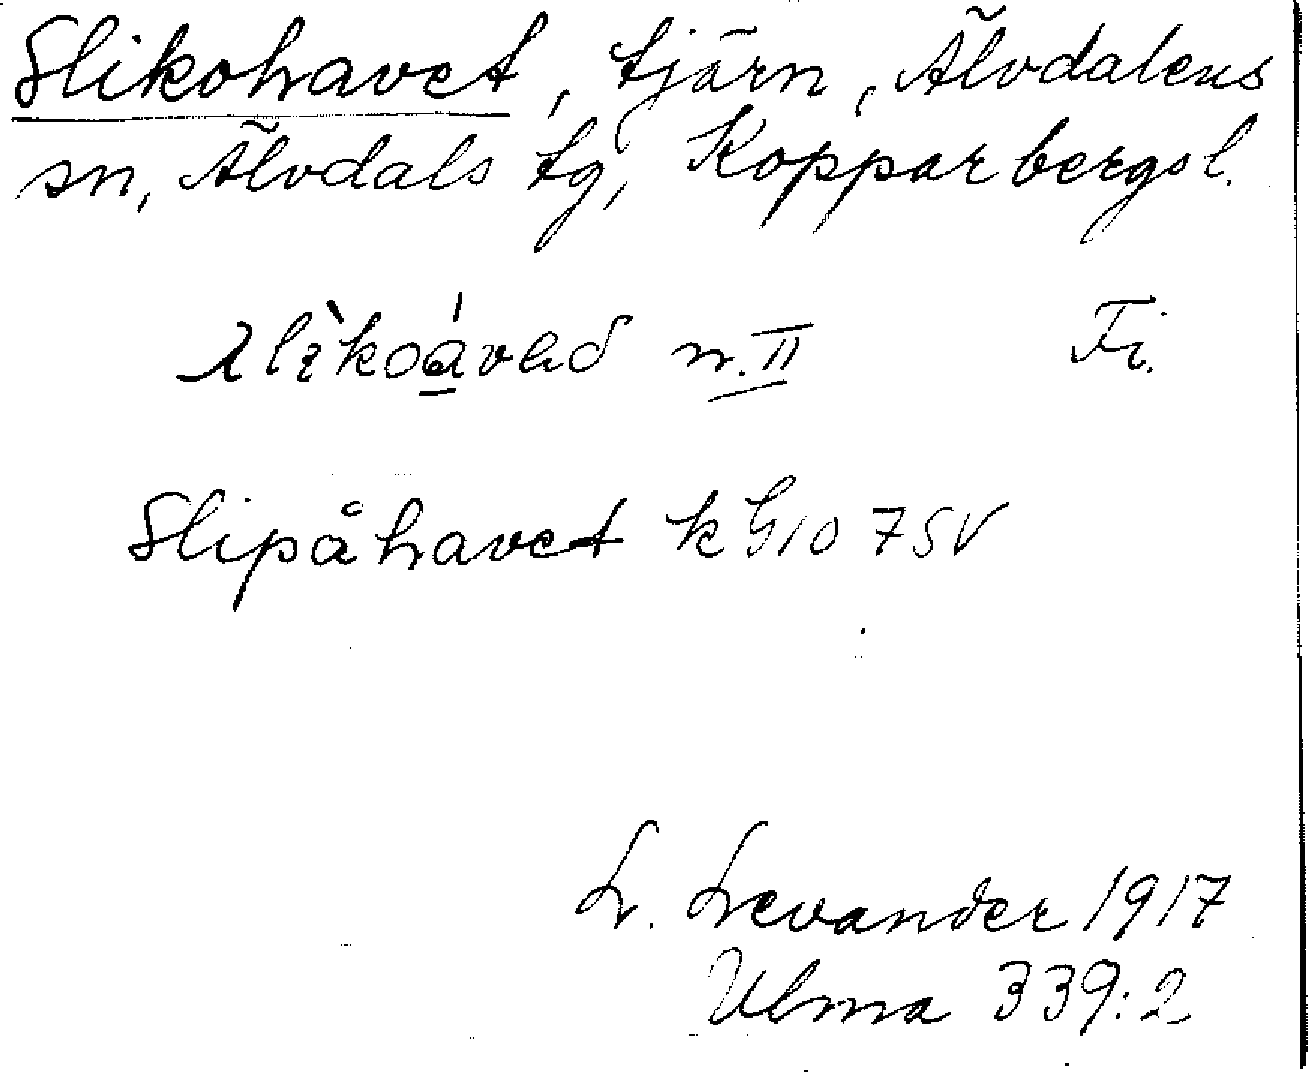 Slikohavet, tjärn, Älvdalens
sn, Älvdals tg, Kopparbergs l.
n. II Fi.
Slipåhavet k G10 7SV
L. Levander 1917
Ulma 339:2